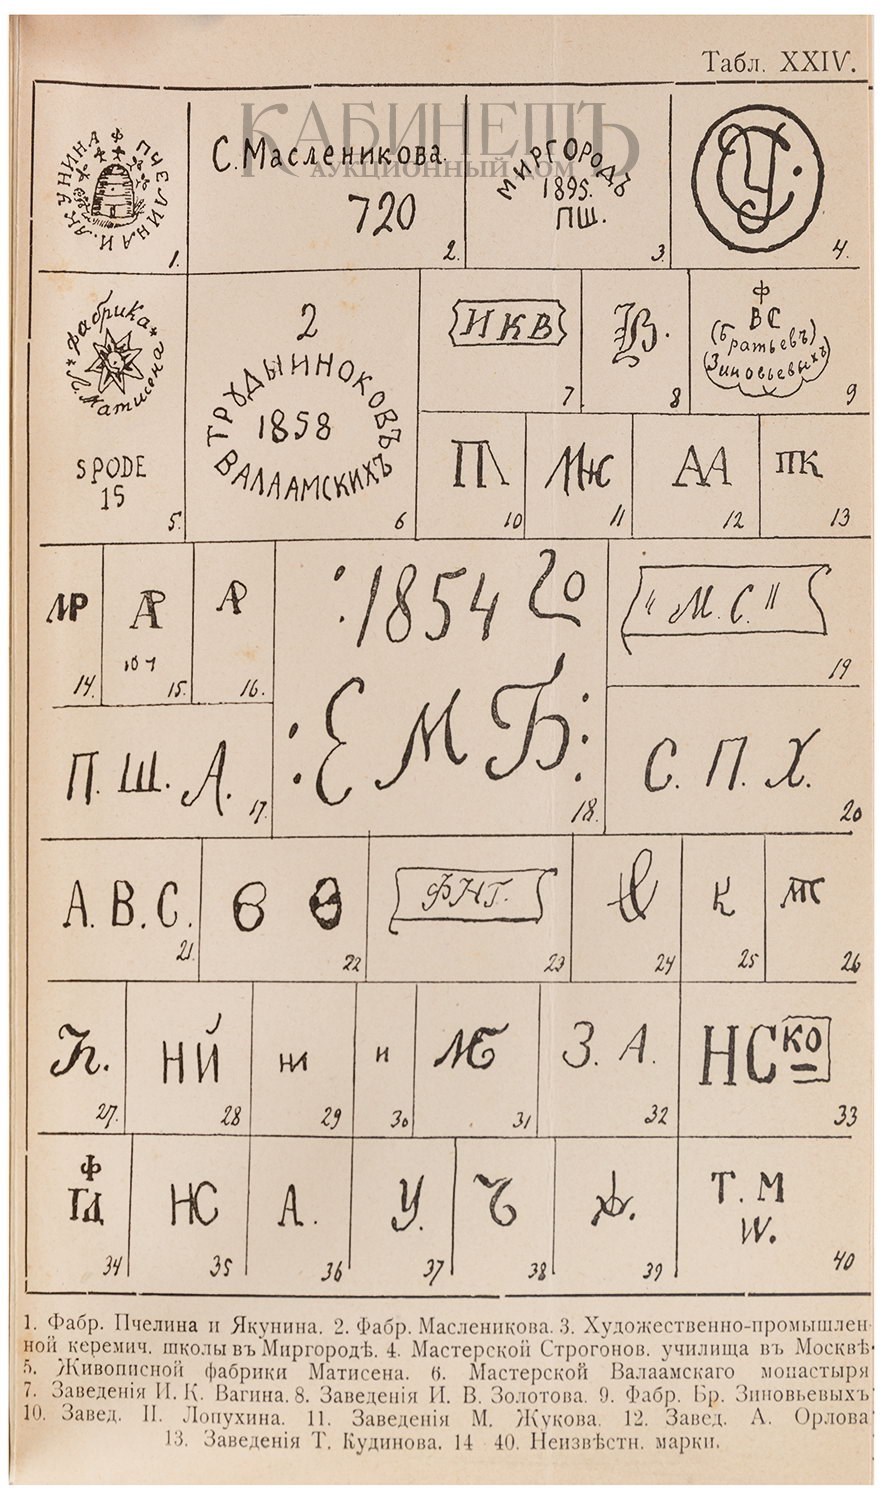 Табл. XXIV.
КАБИНЕТЪ
АУКЦИОННЫЙ ДОМ
Ф
ПЧЕЛИНА И. ЯКУНИНА
1.
С. Масленикова.
720
2.
МИРГОРОДЪ
1895.
ПШ.
3.
4.
*Фабрика*
Л. Матисена
SPODE
15
5.
2
ТРУДЫ ИНОКОВЪ
1858
ВАЛААМСКИХЪ
6
ИКВ
7
В.
8
Ф
ВС
(Братьевъ)
(Зиновьевыхъ)
9
П
10
МЖ
11
АА
12
ПК
13
МР
14.
АР
15.
АР
16.
:1854 го
:Е М Б:
18.
"М. С."
19
П. Ш. А.
17.
С. П. Х.
20
А. В. С.
21.
22
ФНГ.
23
24
К
25
26
27.
НЙ
28
НИ
29
и
30
31
З. А.
32
НСКО
33
Ф
ГД
34
НС
35
А.
36
У.
37
Ъ
38
39
Т. М
W.
40
1. Фабр. Пчелина и Якунина. 2. Фабр. Масленикова. 3. Художественно-промышлен-
ной керемич. школы въ Миргородѣ. 4. Мастерской Строгонов. училища въ Москвѣ
5. Живописной фабрики Матисена. 6. Мастерской Валаамскаго монастыря
7. Заведенія И. К. Вагина. 8. Заведенія И. В. Золотова. 9. Фабр. Бр. Зиновьевыхъ
10. Завед. П. Лопухина. 11. Заведенія М. Жукова. 12. Завед. А. Орлова
13. Заведенія Т. Кудинова. 14 40. Неизвѣстн. марки.